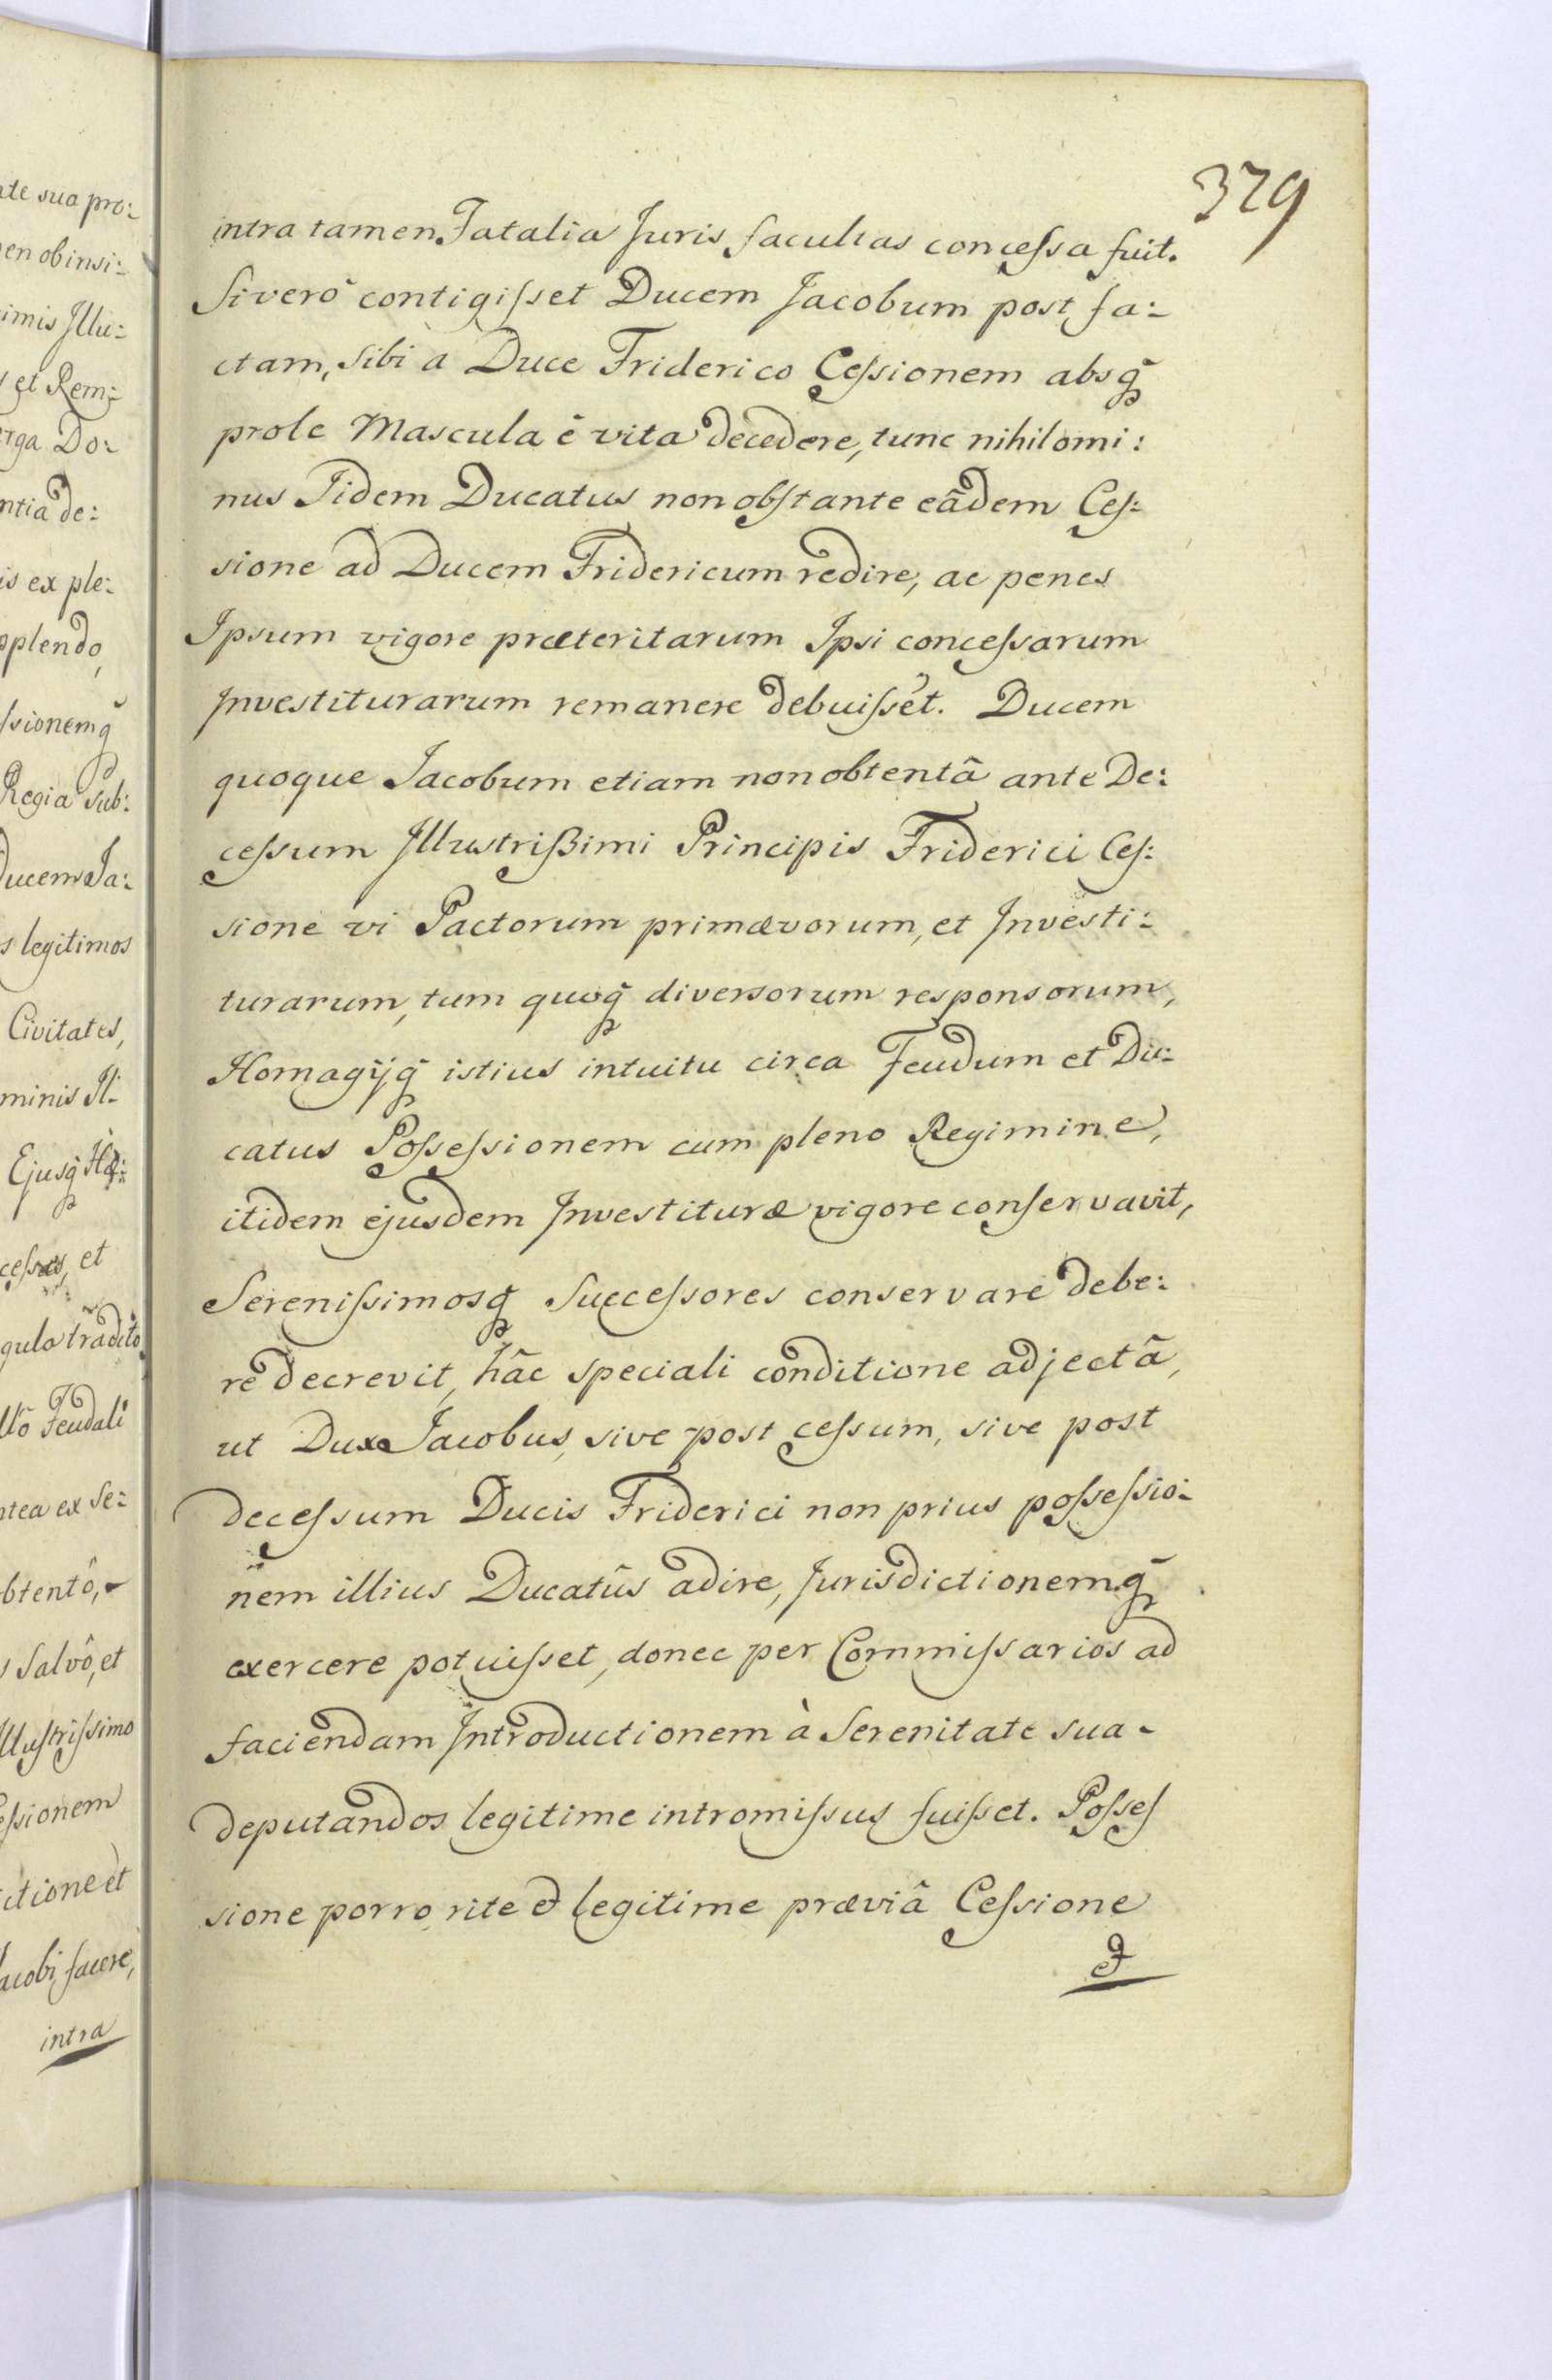 379
intra tamen Fatalia Juris facultas concessa fuit.
Si verò contigisset Ducem Jacobum post fa:
ctam, sibi a Duce Friderico Cessionem absq̃
prole Mascula è vita decedere, tunc nihilomi:
nus Iidem Ducatus non obstante eâdem Ces:
sione ad Ducem Fridericum redire, ac penes
Ipsum vigore præteritarum Ipsi concessarum
Investiturarum remanere debuisset. Ducem
quoque Jacobum etiam non obtentâ ante De:
cessum Illustrißimi Principis Friderici Ces:
sione vi Pactorum primævorum, et Investi:
turarum, tum quoq̃ diversorum responsorum,
Homagijq̃ istius intuitu circa Feudum et Du:
catus Possessionem cum pleno Regimine,
itidem ejusdem Investituræ vigore conservavit,
Serenissimosq̃ Successores conservare debe:
re decrevit, hâc speciali conditione adjectâ,
ut Dux Jacobus, sive post cessum, sive post
decessum Ducis Friderici non prius possessio:
nem illius Ducatûs adire, Jurisdictionemq̃
exercere potuisset, donec per Commissarios ad
faciendam Introductionem à Serenitate sua
deputandos legitime intromissus fuisset. Posses
sione porro rite & legitime præviâ Cessione
&
te sua pro:
en ob insi:
imis Illu:
et Rem:
erga Do:
ntia de:
is ex ple:
plendo,
ssionemq̃
Regia Sub:
Ducem Ja:
s legitimos
Civitates,
minis Il:
Ejusq̃ Hæ:
et
gulo tradito
Feudali
ntea ex Se:
btentô,
s Salvô, et
llustrissimo
essionem
ctione et
acobi facere,
intra